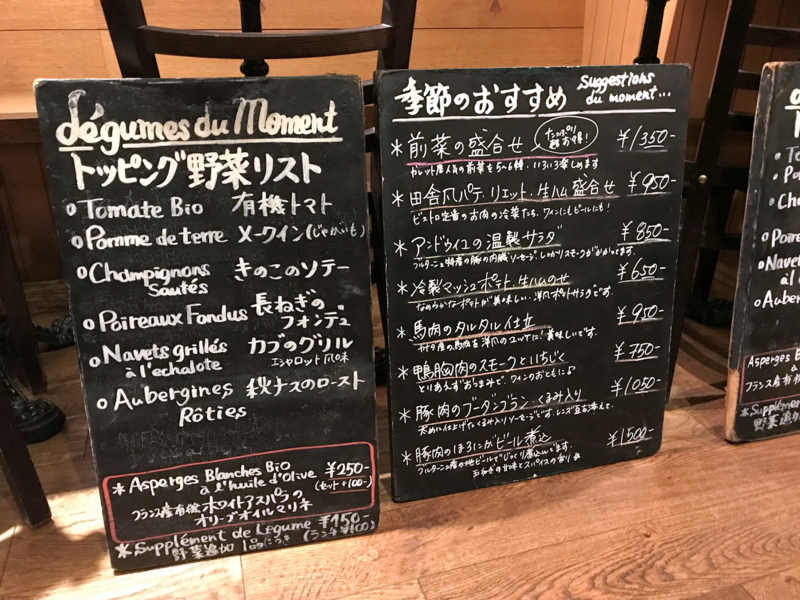 Légumes du Moment
トッピング野菜リスト
Tomate Bio 有機トマト
Pomme de terre メークイン(じゃがいも)
Champignons Sautés きのこのソテー
Poireaux Fondus 長ねぎのフォンデュ
Navets grillés à l'echalote カブのグリル
エシャロット風味
Aubergines Rôties 秋ナスのロースト
*Asperges Blanches Bio à l'huile d'Olive ¥250-
(セット+100-)
フランス産有機ホワイトアスパラの
オリーブオイルマリネ
*Supplément de Légume ¥150-
野菜追加 1品につき (ランチ¥100)
季節のおすすめ Suggestions du moment...
*前菜の盛合せ ¥1350-
ガレット屋人気の前菜を5~6種、いろいろ楽しめます
*田舎風パテ、リエット、生ハム盛合せ ¥950-
ビストロ定番のお肉の冷菜たち、ワインにもビールにも!
*アンドゥイユの温製サラダ ¥850-
ブルターニュ特産の豚の内臓ソーセージ
*冷製マッシュポテト 生ハムのせ ¥650-
なめらかなポテトが美味しい、洋風ポテトサラダです。
*馬肉のタルタル仕立 ¥950-
*鴨胸肉のスモークといちじく ¥750-
とりあえずおつまみで、ワインのおともに♪
*豚肉のブーダンブラン くるみ入り ¥1050-
*豚肉のほろにがビール煮込 ¥1500-
ブルターニュ産の地ビールでじっくり煮込んでます。
玉ねぎの甘味とスパイスの香り
Asperges
フランス産有機
*Supplément
野菜追加